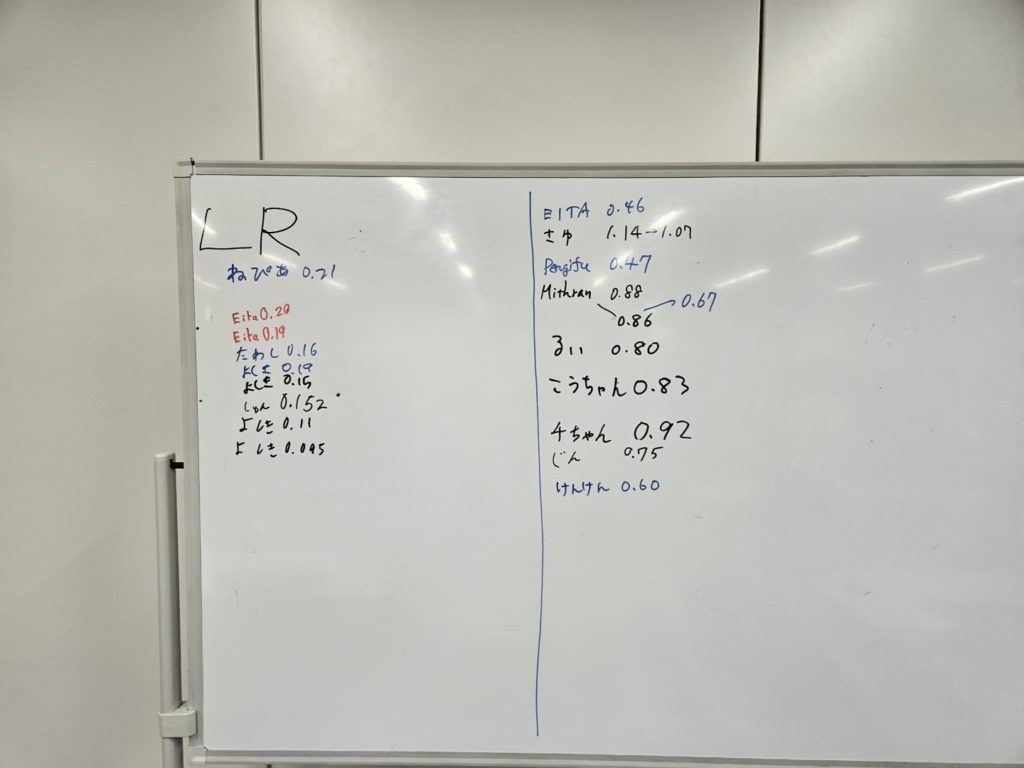 LR
ねぴあ 0.21
Eita 0.20
Eita 0.19
たわし 0.16
よしき 0.19
よしき 0.15
しゅん 0.152
よしき 0.11
よしき 0.095
EITA 0.46
さゆ 1.14→1.07
0.47
Mithran 0.88
0.86 → 0.67
るい 0.80
こうちゃん 0.83
千ちゃん 0.92
じん 0.75
けんけん 0.60